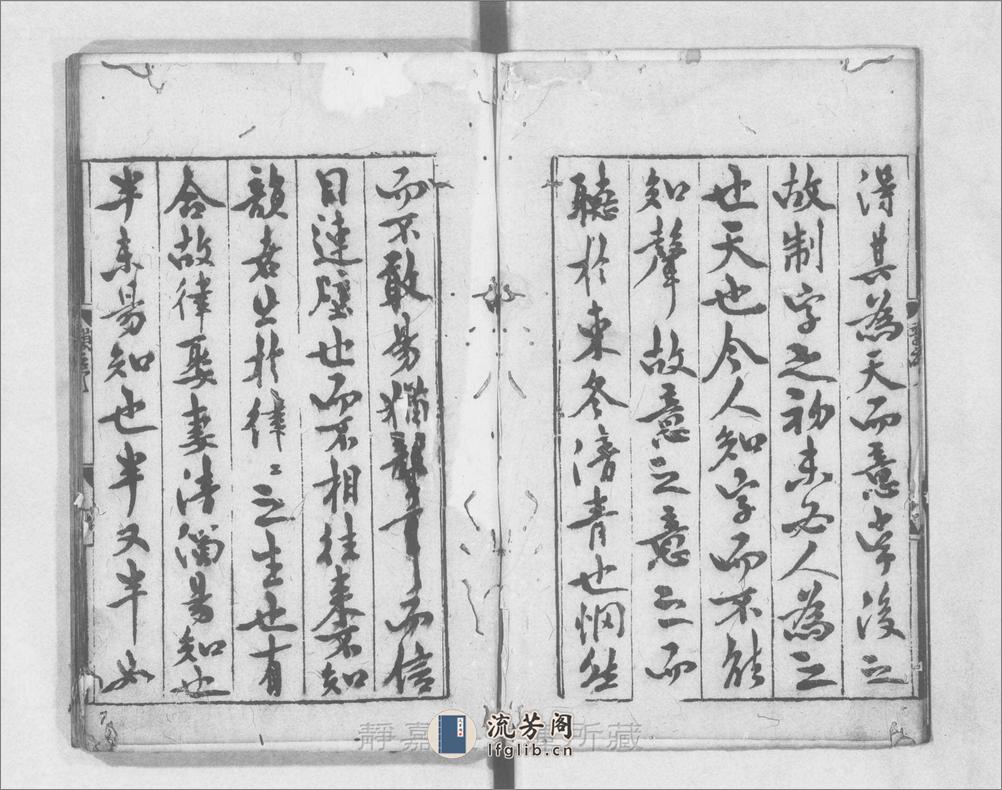 得其為天而意常後之
故制字之初未必人為之
也天也今人知字而不能
知聲故意之意之而
聽於東冬清青也惘然
而不敢易猶 而信
目連壁也而不相往來不知
韻者止於律〻之生也有
合故律娶妻法猶易知也
半未易知也半又半如
静嘉 所藏
流芳阁
lfglib.cn